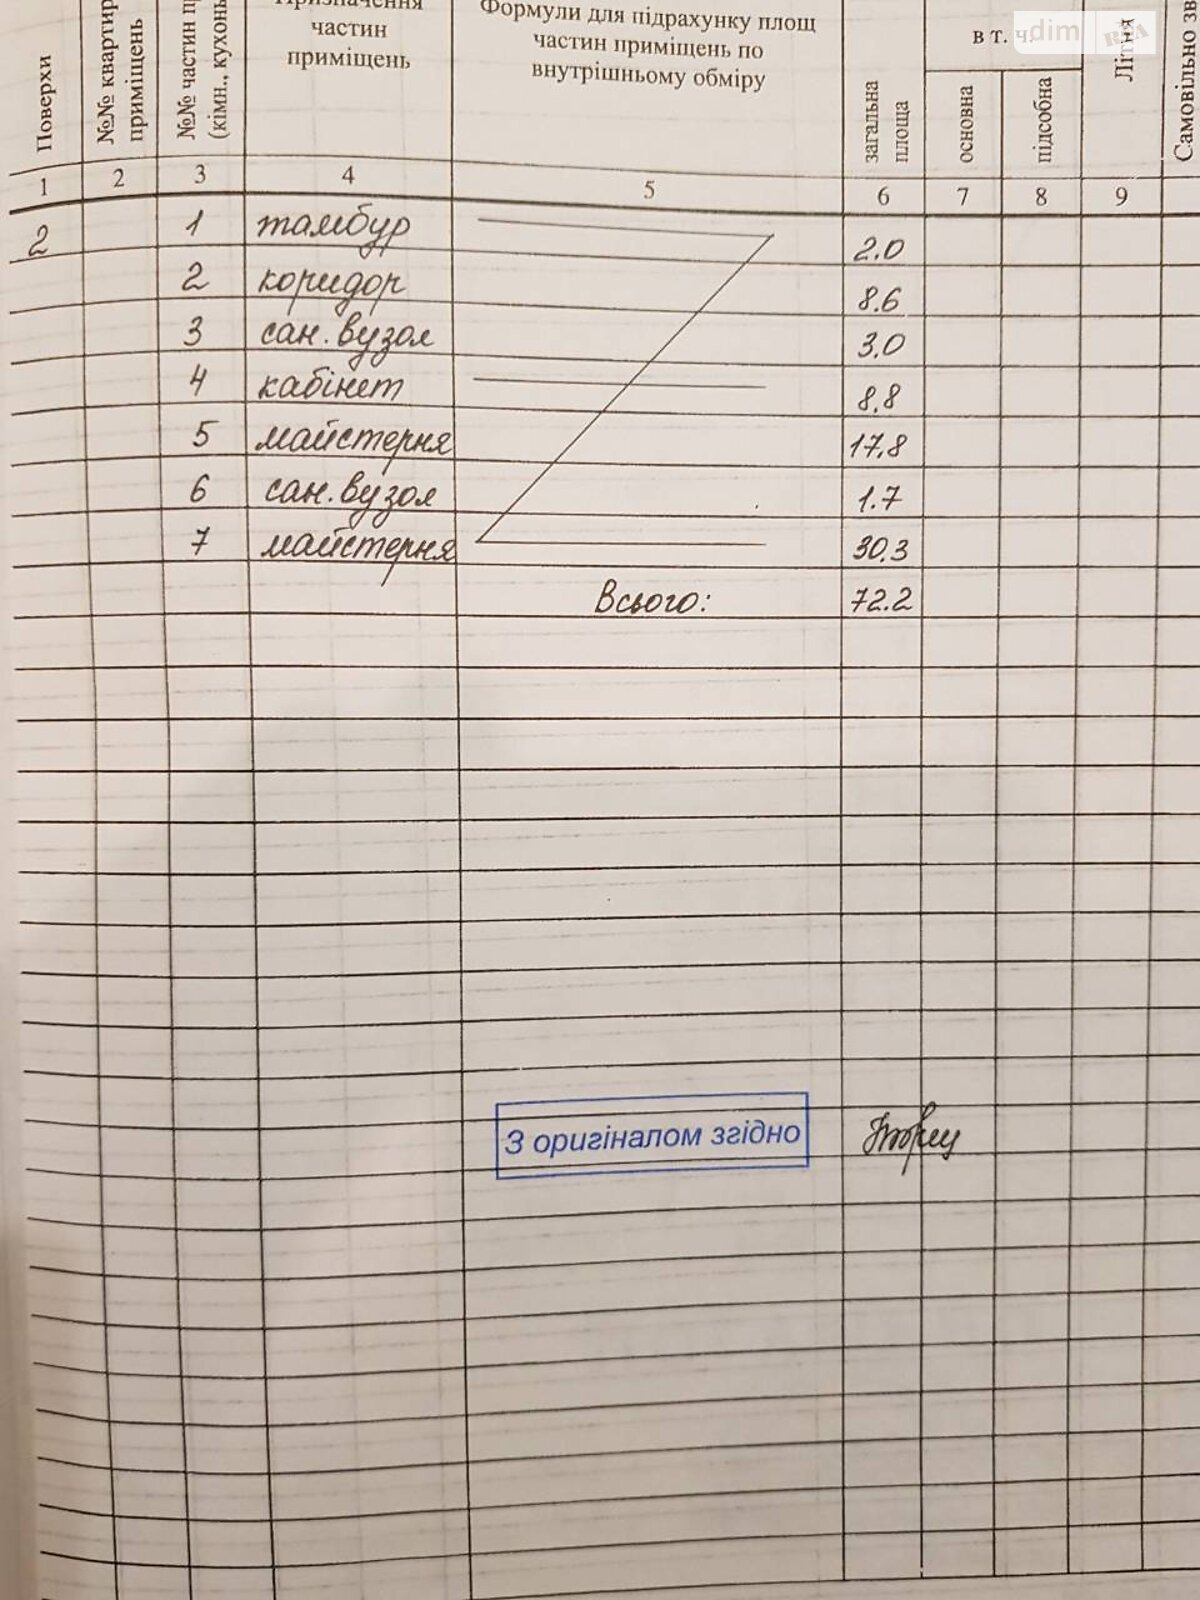 Поверхи
№№ квартир
приміщень
№№ частин
(кімн., кухонь
Призначення
частин
приміщень
Формули для підрахунку площ
частин приміщень по
внутрішньому обміру
загальна
площа
в т. ч.
основна
підсобна
Літня
Самовільно
dim RIA
1 2 3 4 5 6 7 8 9
2 1 тамбур 2.0
2 коридор 8.6
3 сан. вузол 3.0
4 кабінет 8,8
5 майстерня 17,8
6 сан. вузол 1.7
7 майстерня 30.3
Всього: 72.2
З оригіналом згідно